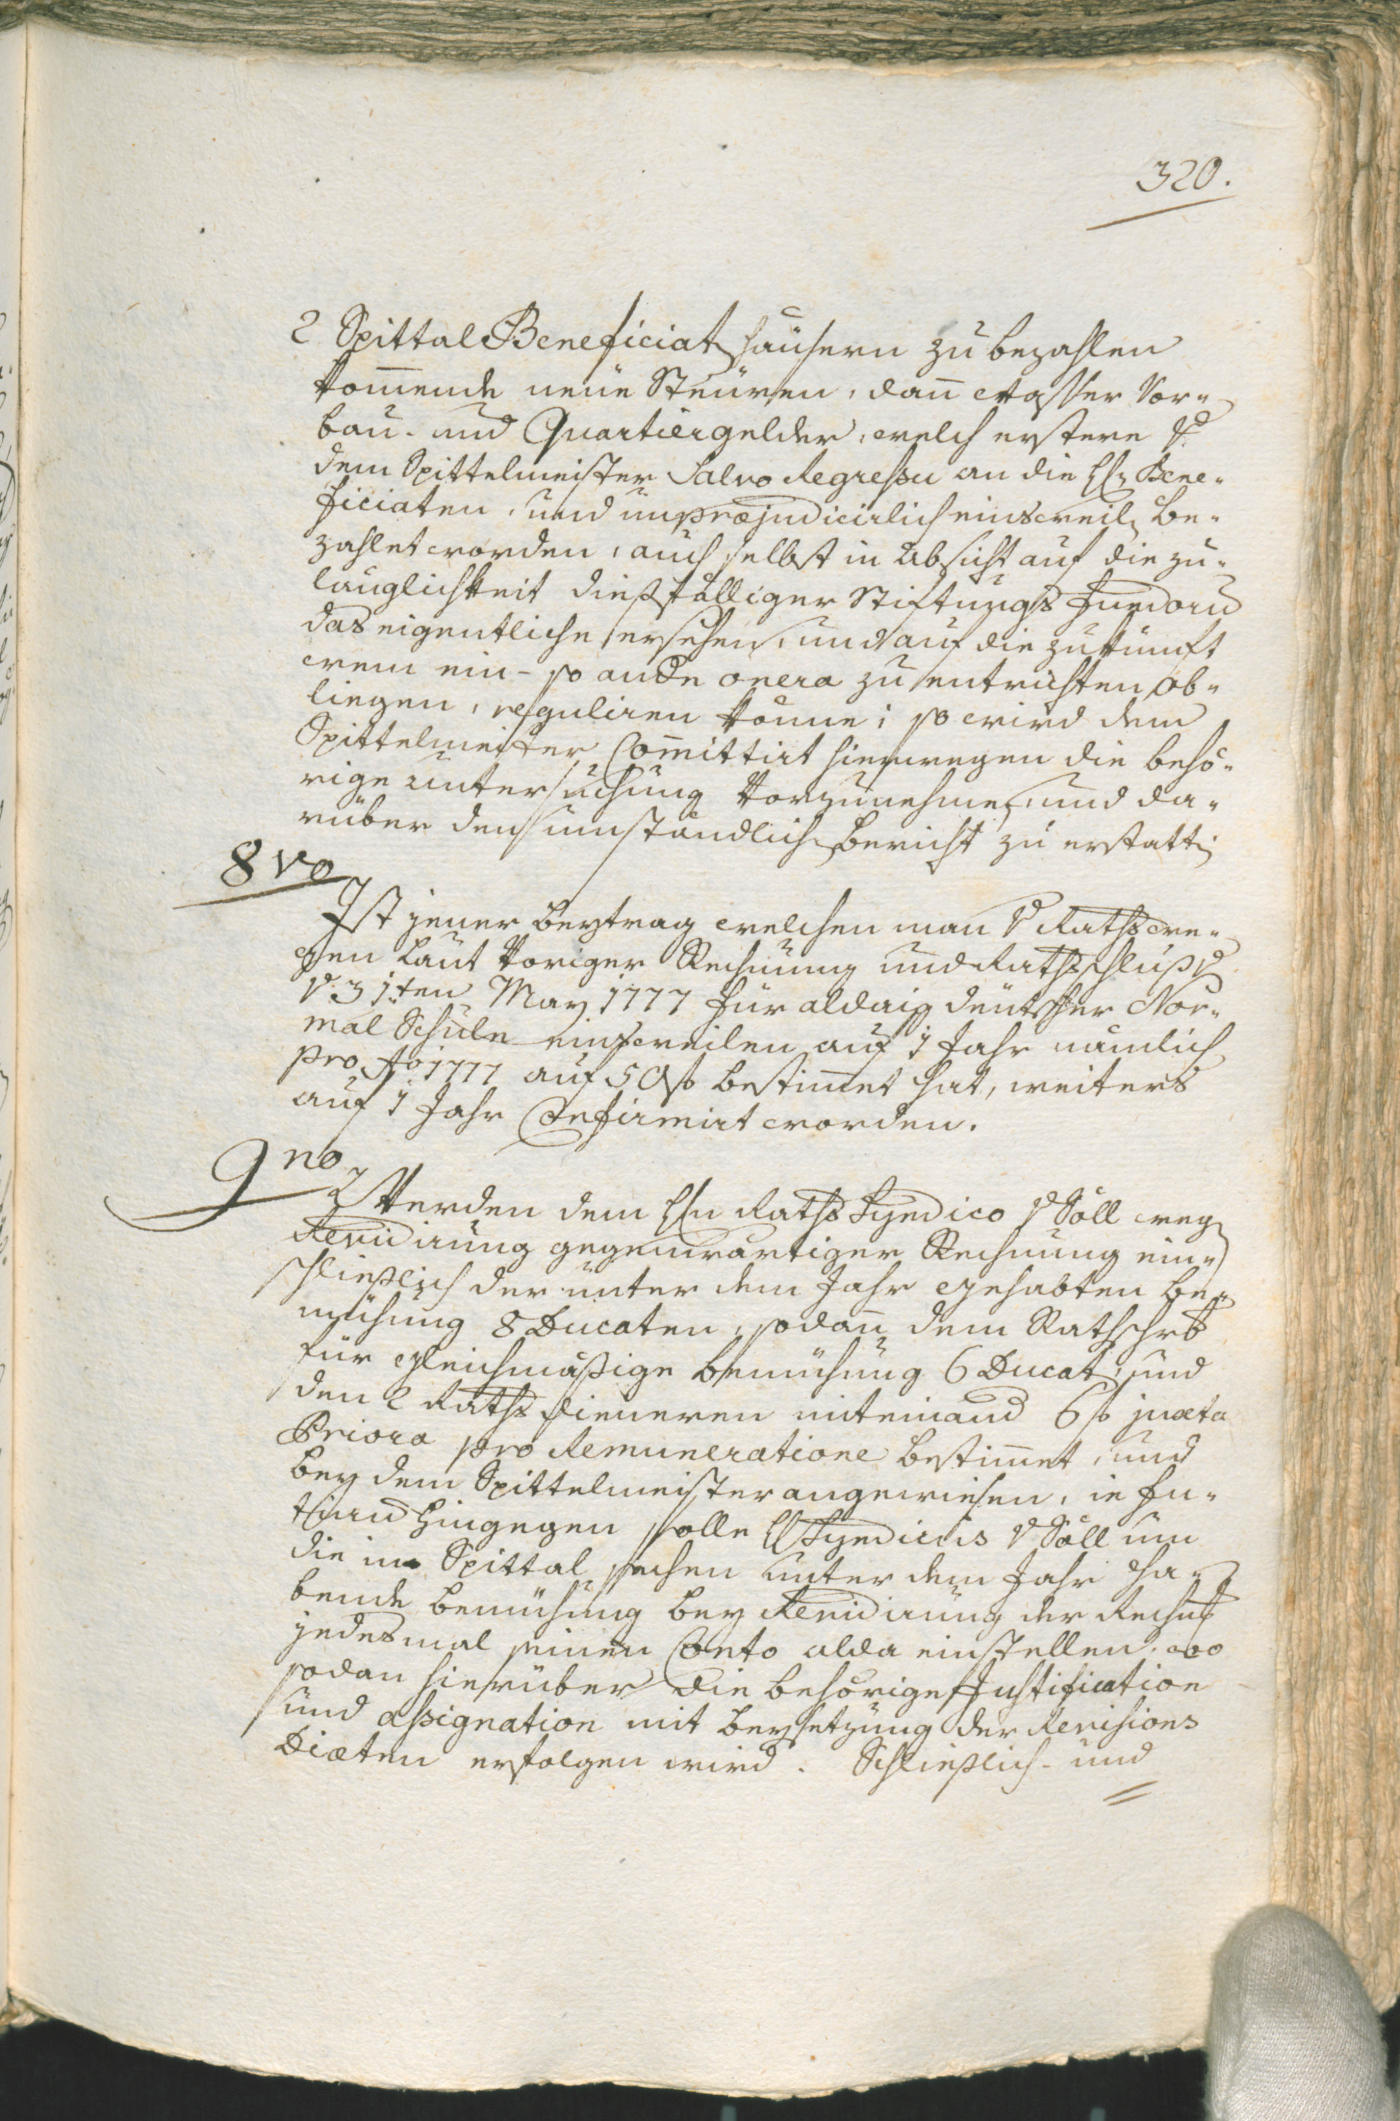 320.
2 Spittal Beneficiat häüsern zu bezahlen
kom̄ende neüe Steüren, dan̄ Wasser Vor-
bau- und Quartiergelder, welch erstere
dem Spittelmeister Salvo Regressu an die H: Bene-
ficiaten, und unpræjudicirlich einsweil be-
zahlet worden, auch selbst in Absicht auf die zu-
länglichkeit dießfälliger Stiftungs Fundorum
das eigentliche ersehen, und auf die zukunft
wem ein- so andre onera zu entrichten ob-
liegen, reguliren könne; so wird dem
Spittelmeister Com̄ittirt hierwegen die behö-
rige untersuchung Vorzunehmen, und da-
rüber den umständlich bericht zu erstatt
8vo
Ist jener beytrag welchen man v Rathswe-
gen laut Voriger Rechnung und Rathsschluß
v 31ten May 1777 für aldaig deütscher Nor-
mal Schule einsweilen auf 1 Jahr nämlich
pro Ao 1777 auf 50 f bestim̄et hat, weiters
auf 1 Jahr Confirmirt worden.
9no
Werden dem Hn Raths Syndico v Söll weg
Revidirung gegenwärtiger Rechnung ein-
schließlich der unter dem Jahr gehabten be-
mühung 8 Ducaten, sodan̄ dem Rathschrb
für gleichmäßige bemühung 6 Ducat, und
den 2 Raths dieneren miteinand 6 f juxta
Priora pro Remuneratione bestim̄et, und
bey dem Spittelmeister angewiesen, in fu-
turum hingegen solle H Syndicus v Söll um
die in Spittal sachen unter dem Jahr ha-
bende bemühung bey Revidirung der Rechnung
jedesmal seinen Conto alda einstellen, wo
sodan hierüber die behörige Justification
und assignation mit beysetzung der Revisions
Diæten erfolgen wird. Schließlich- und